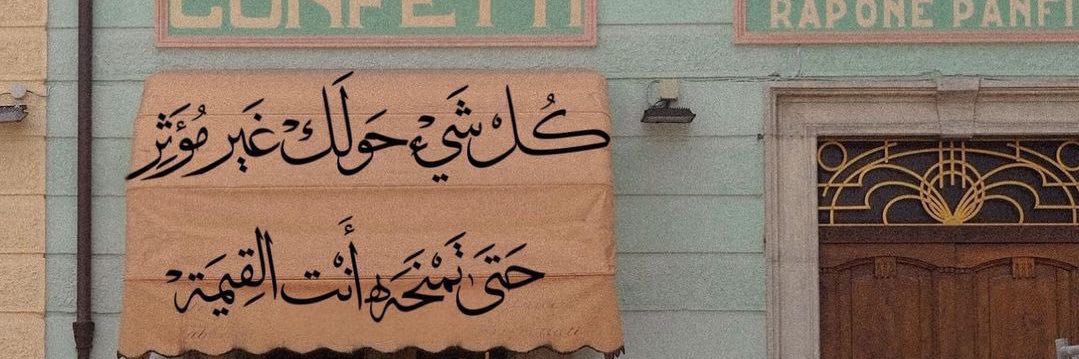 CONFETTI
RAPONE PANFI
كُل شَيْء حَولَكْ غَير مُؤثِر
حَتَى تَمْنَحَه أَنْت القِيمَة